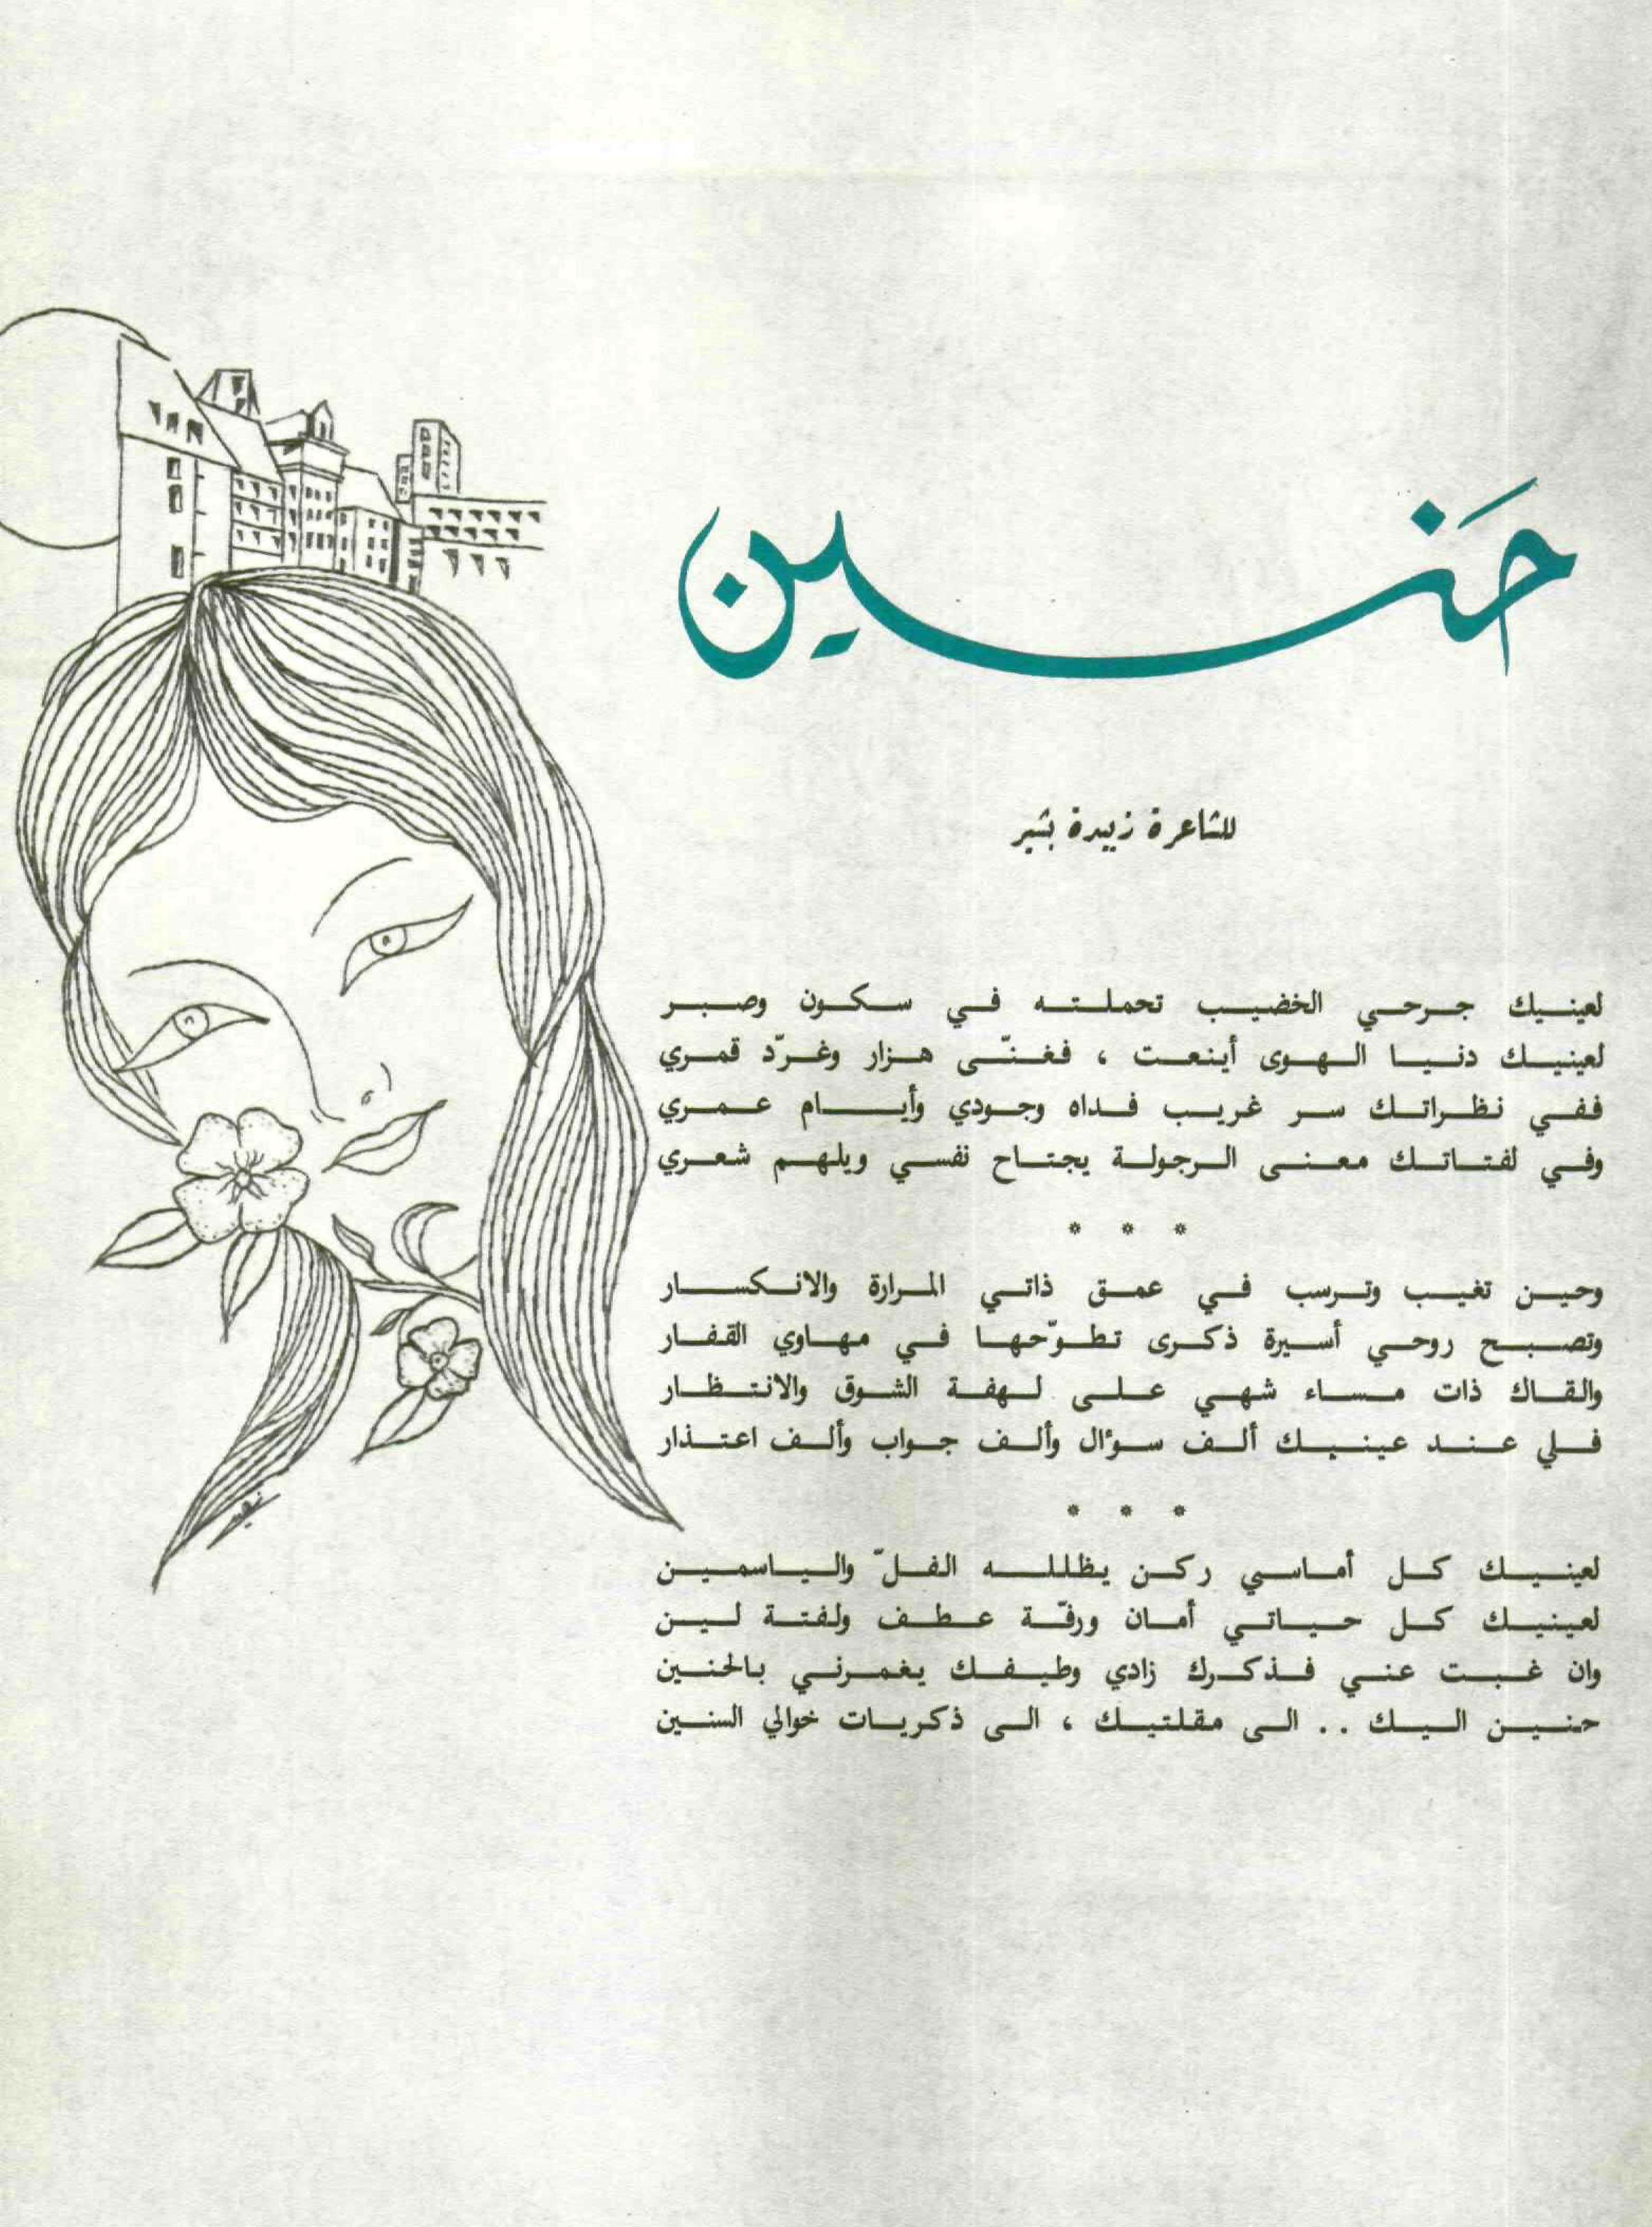 حَنين
للشاعرة زبيدة بشير
لعينيك جرحي الخضيب تحملته في سكون وصبر
لعينيك دنيا الهوى أينعت ، فغنّى هزار وغرّد قمري
ففي نظراتك سر غريب فداه وجودي وأيام عمري
وفي لفتاتك معنى الرجولة يجتاح نفسي ويلهم شعري
* * *
وحين تغيب وترسب في عمق ذاتي المرارة والانكسار
وتصبح روحي أسيرة ذكرى تطوّحها في مهاوي القفار
والقاك ذات مساء شهي على لهفة الشوق والانتظار
فلي عند عينيك ألف سؤال وألف جواب وألف اعتذار
* * *
لعينيك كل أماسي ركن يظلله الفلّ والياسمين
لعينيك كل حياتي أمان ورفّة عطف ولفتة لين
وان غبت عني فذكرك زادي وطيفك يغمرني بالحنين
حنين اليك .. الى مقلتيك ، الى ذكريات خوالي السنين